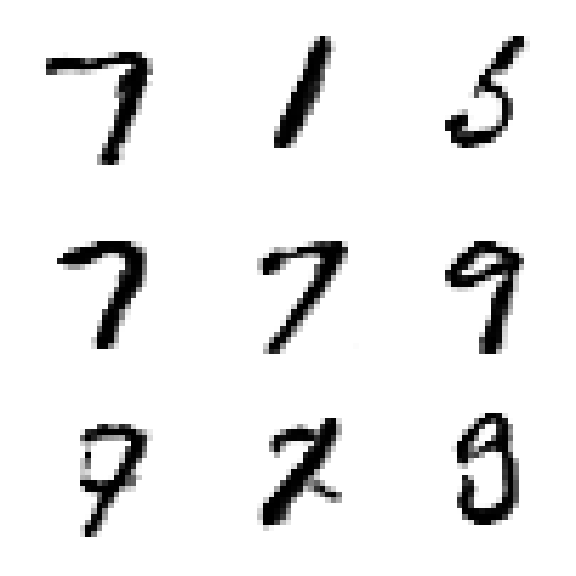 7 1 5
7 7 9
9 2 9